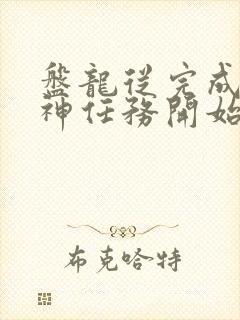 盤龍從完成
神任務開始
布克哈特